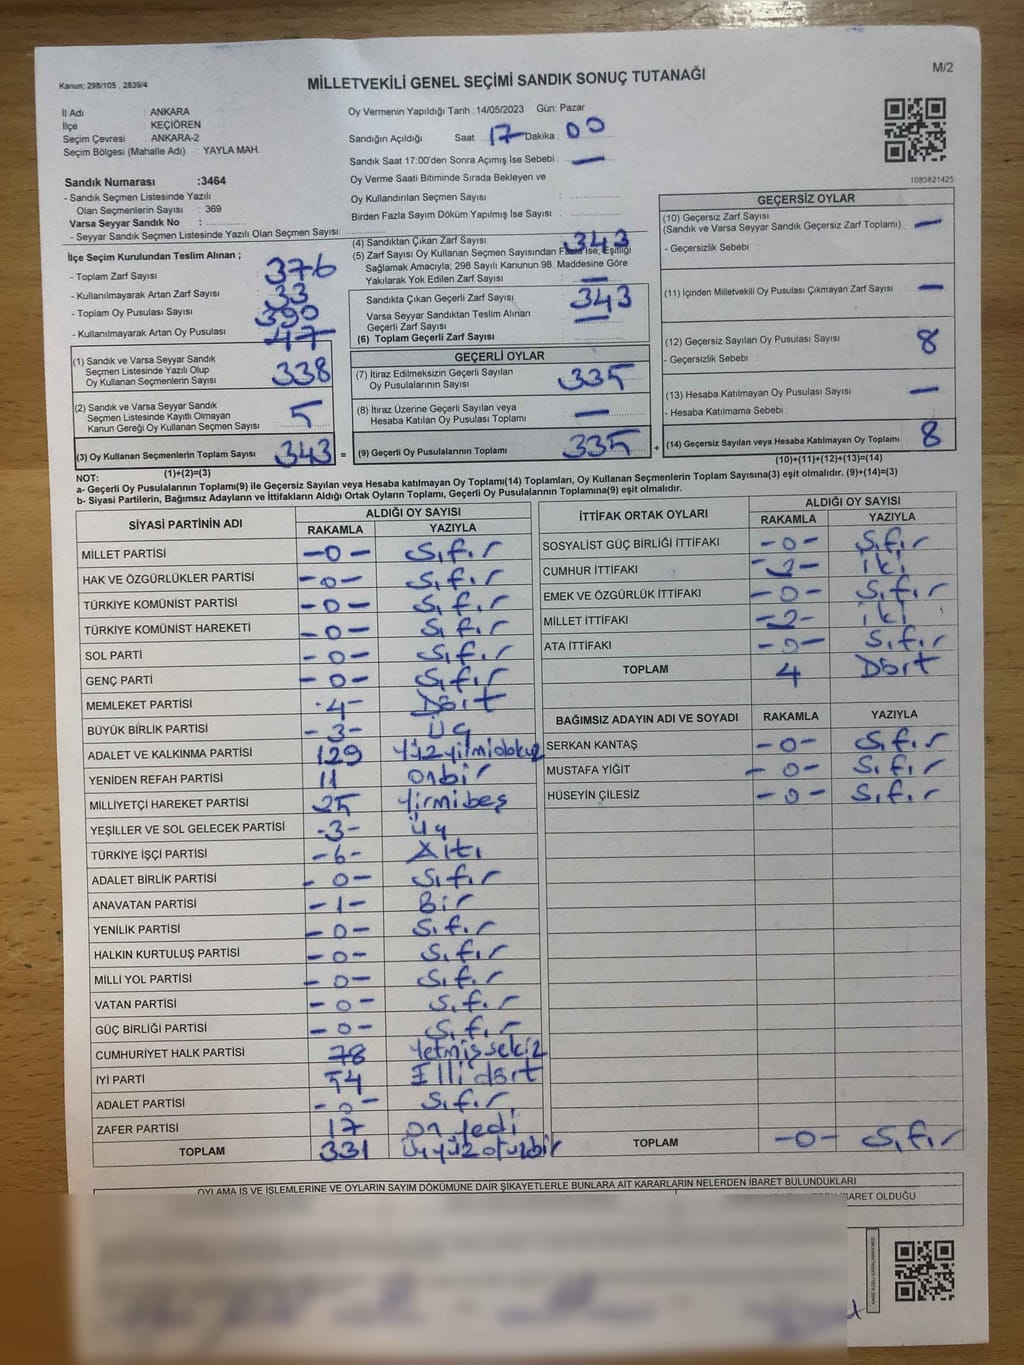 Kanun: 298/105 , 2839/4
MİLLETVEKİLİ GENEL SEÇİMİ SANDIK SONUÇ TUTANAĞI
M/2
İl Adı : ANKARA
İlçe : KEÇİÖREN
Seçim Çevresi : ANKARA-2
Seçim Bölgesi (Mahalle Adı) : YAYLA MAH.
Sandık Numarası :3464
- Sandık Seçmen Listesinde Yazılı
Olan Seçmenlerin Sayısı : 369
Varsa Seyyar Sandık No :
- Seyyar Sandık Seçmen Listesinde Yazılı Olan Seçmen Sayısı:
Oy Vermenin Yapıldığı Tarih : 14/05/2023 Gün: Pazar
Sandığın Açıldığı Saat 17 Dakika : 00
Sandık Saat 17:00'den Sonra Açımış İse Sebebi : —
Oy Verme Saati Bitiminde Sırada Bekleyen ve
Oy Kullandırılan Seçmen Sayısı :
Birden Fazla Sayım Döküm Yapılmış İse Sayısı :
1083821425
İlçe Seçim Kurulundan Teslim Alınan ;
- Toplam Zarf Sayısı : 376
- Kullanılmayarak Artan Zarf Sayısı : 33
- Toplam Oy Pusulası Sayısı : 390
- Kullanılmayarak Artan Oy Pusulası : 47
(1) Sandık ve Varsa Seyyar Sandık
Seçmen Listesinde Yazılı Olup
Oy Kullanan Seçmenlerin Sayısı : 338
(2) Sandık ve Varsa Seyyar Sandık
Seçmen Listesinde Kayıtlı Olmayan
Kanun Gereği Oy Kullanan Seçmen Sayısı : 5
(3) Oy Kullanan Seçmenlerin Toplam Sayısı : 343 =
(1)+(2)=(3)
(4) Sandıktan Çıkan Zarf Sayısı : 343
(5) Zarf Sayısı Oy Kullanan Seçmen Sayısından Fazla İse, Eşitliği
Sağlamak Amacıyla; 298 Sayılı Kanunun 98. Maddesine Göre
Yakılarak Yok Edilen Zarf Sayısı : —
Sandıkta Çıkan Geçerli Zarf Sayısı : 343
Varsa Seyyar Sandıktan Teslim Alınan
Geçerli Zarf Sayısı : —
(6) Toplam Geçerli Zarf Sayısı :
GEÇERLİ OYLAR
(7) İtiraz Edilmeksizin Geçerli Sayılan
Oy Pusulalarının Sayısı : 335
(8) İtiraz Üzerine Geçerli Sayılan veya
Hesaba Katılan Oy Pusulası Toplamı : —
(9) Geçerli Oy Pusulalarının Toplamı : 335 +
GEÇERSİZ OYLAR
(10) Geçersiz Zarf Sayısı
(Sandık ve Varsa Seyyar Sandık Geçersiz Zarf Toplamı) : —
- Geçersizlik Sebebi :
(11) İçinden Milletvekili Oy Pusulası Çıkmayan Zarf Sayısı : —
(12) Geçersiz Sayılan Oy Pusulası Sayısı : 8
- Geçersizlik Sebebi :
(13) Hesaba Katılmayan Oy Pusulası Sayısı : —
- Hesaba Katılmama Sebebi :
(14) Geçersiz Sayılan veya Hesaba Katılmayan Oy Toplamı : 8
(10)+(11)+(12)+(13)=(14)
NOT:
a- Geçerli Oy Pusulalarının Toplamı(9) ile Geçersiz Sayılan veya Hesaba katılmayan Oy Toplamı(14) Toplamları, Oy Kullanan Seçmenlerin Toplam Sayısına(3) eşit olmalıdır. (9)+(14)=(3)
b- Siyasi Partilerin, Bağımsız Adayların ve İttifakların Aldığı Ortak Oyların Toplamı, Geçerli Oy Pusulalarının Toplamına(9) eşit olmalıdır.
SİYASİ PARTİNİN ADI ALDIĞI OY SAYISI
RAKAMLA YAZIYLA
MİLLET PARTİSİ -0- Sıfır
HAK VE ÖZGÜRLÜKLER PARTİSİ -0- Sıfır
TÜRKİYE KOMÜNİST PARTİSİ -0- Sıfır
TÜRKİYE KOMÜNİST HAREKETİ -0- Sıfır
SOL PARTİ -0- Sıfır
GENÇ PARTİ -0- Sıfır
MEMLEKET PARTİSİ -4- Dört
BÜYÜK BİRLİK PARTİSİ -3- Üç
ADALET VE KALKINMA PARTİSİ 129 Yüzyilmidokuz
YENİDEN REFAH PARTİSİ 11 onbir
MİLLİYETÇİ HAREKET PARTİSİ 25 Yirmibeş
YEŞİLLER VE SOL GELECEK PARTİSİ -3- Üç
TÜRKİYE İŞÇİ PARTİSİ -6- Altı
ADALET BİRLİK PARTİSİ -0- Sıfır
ANAVATAN PARTİSİ -1- Bir
YENİLİK PARTİSİ -0- Sıfır
HALKIN KURTULUŞ PARTİSİ -0- Sıfır
MİLLİ YOL PARTİSİ -0- Sıfır
VATAN PARTİSİ -0- Sıfır
GÜÇ BİRLİĞİ PARTİSİ -0- Sıfır
CUMHURİYET HALK PARTİSİ 78 Yetmişsekiz
İYİ PARTİ 54 Ellidört
ADALET PARTİSİ -0- Sıfır
ZAFER PARTİSİ 17 on yedi
TOPLAM 331 üçyüzotuzbir
İTTİFAK ORTAK OYLARI ALDIĞI OY SAYISI
RAKAMLA YAZIYLA
SOSYALİST GÜÇ BİRLİĞİ İTTİFAKI -0- Sıfır
CUMHUR İTTİFAKI -2- iki
EMEK VE ÖZGÜRLÜK İTTİFAKI -0- Sıfır
MİLLET İTTİFAKI -2- iki
ATA İTTİFAKI -0- Sıfır
TOPLAM 4 Dört
BAĞIMSIZ ADAYIN ADI VE SOYADI RAKAMLA YAZIYLA
SERKAN KANTAŞ -0- Sıfır
MUSTAFA YİĞİT -0- Sıfır
HÜSEYİN ÇİLESİZ -0- Sıfır
TOPLAM -0- Sıfır
OYLAMA İŞ VE İŞLEMLERİNE VE OYLARIN SAYIM DÖKÜMÜNE DAİR ŞİKAYETLERLE BUNLARA AİT KARARLARIN NELERDEN İBARET BULUNDUKLARI
BARET OLDUĞU